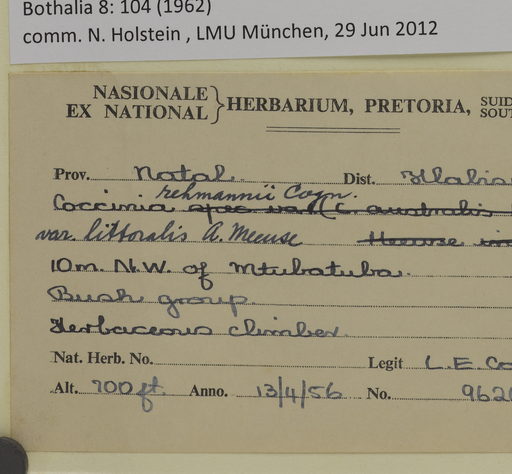 Bothalia 8: 104 (1962)
comm. N. Holstein , LMU München, 29 Jun 2012
NASIONALE
EX NATIONAL } HERBARIUM, PRETORIA, SUID
SOUT
Prov. Natal. Dist. Hlabis
rehmannii Cogn.
Coccinia spec var (C. australis
var. littoralis A. Meeuse Meeuse
10m. N.W. of Mtubatuba.
Bush group.
Herbaceous climber.
Nat. Herb. No. Legit L.E. Co
Alt. 700 ft. Anno. 13/4/56 No. 962